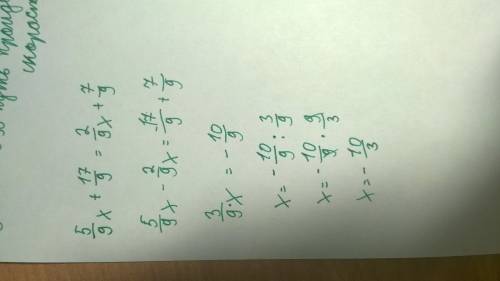 путь
5/9 x + 17/9 = 2/9 x + 7/9
5/9 x - 2/9 x = -17/9 + 7/9
3/9 · x = - 10/9
x = - 10/9 : 3/9
x = - 10/9 · 9/3
x = - 10/3